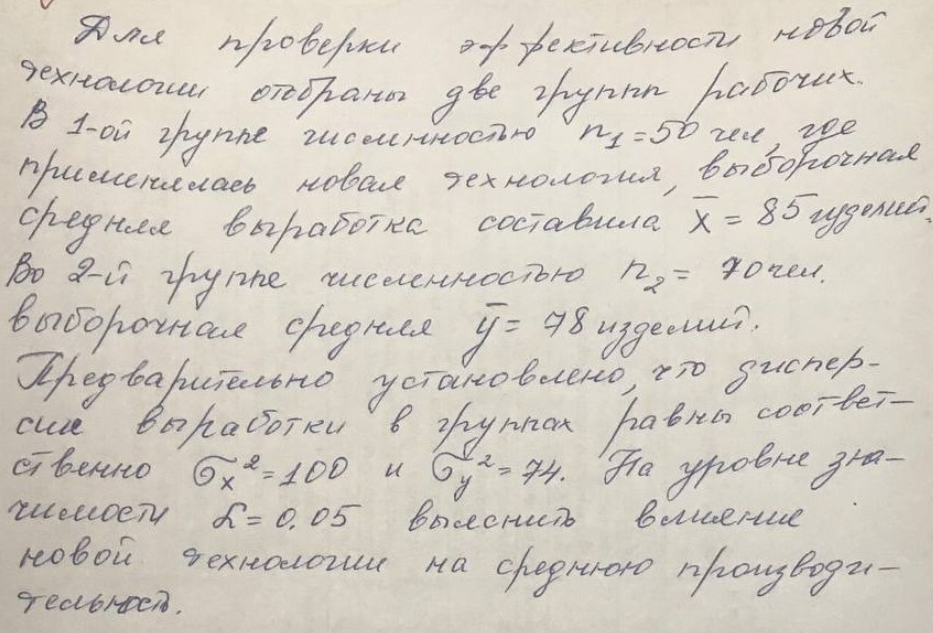 Для проверки эффективности новой
технологии отобраны две групп рабочих.
В 1-ой группе численностью n₁=50 чел, где
применялась новая технология, выборочная
средняя выработка составила x̄ = 85 изделий.
Во 2-й группе численностью n₂ = 70 чел.
выборочная средняя ȳ = 78 изделий.
Предварительно установлено, что диспер-
сии выработки в группах равны соответ-
ственно σₓ²=100 и σ_y²=74. На уровне зна-
чимости α=0,05 выяснить влияние
новой технологии на среднюю производи-
тельность.